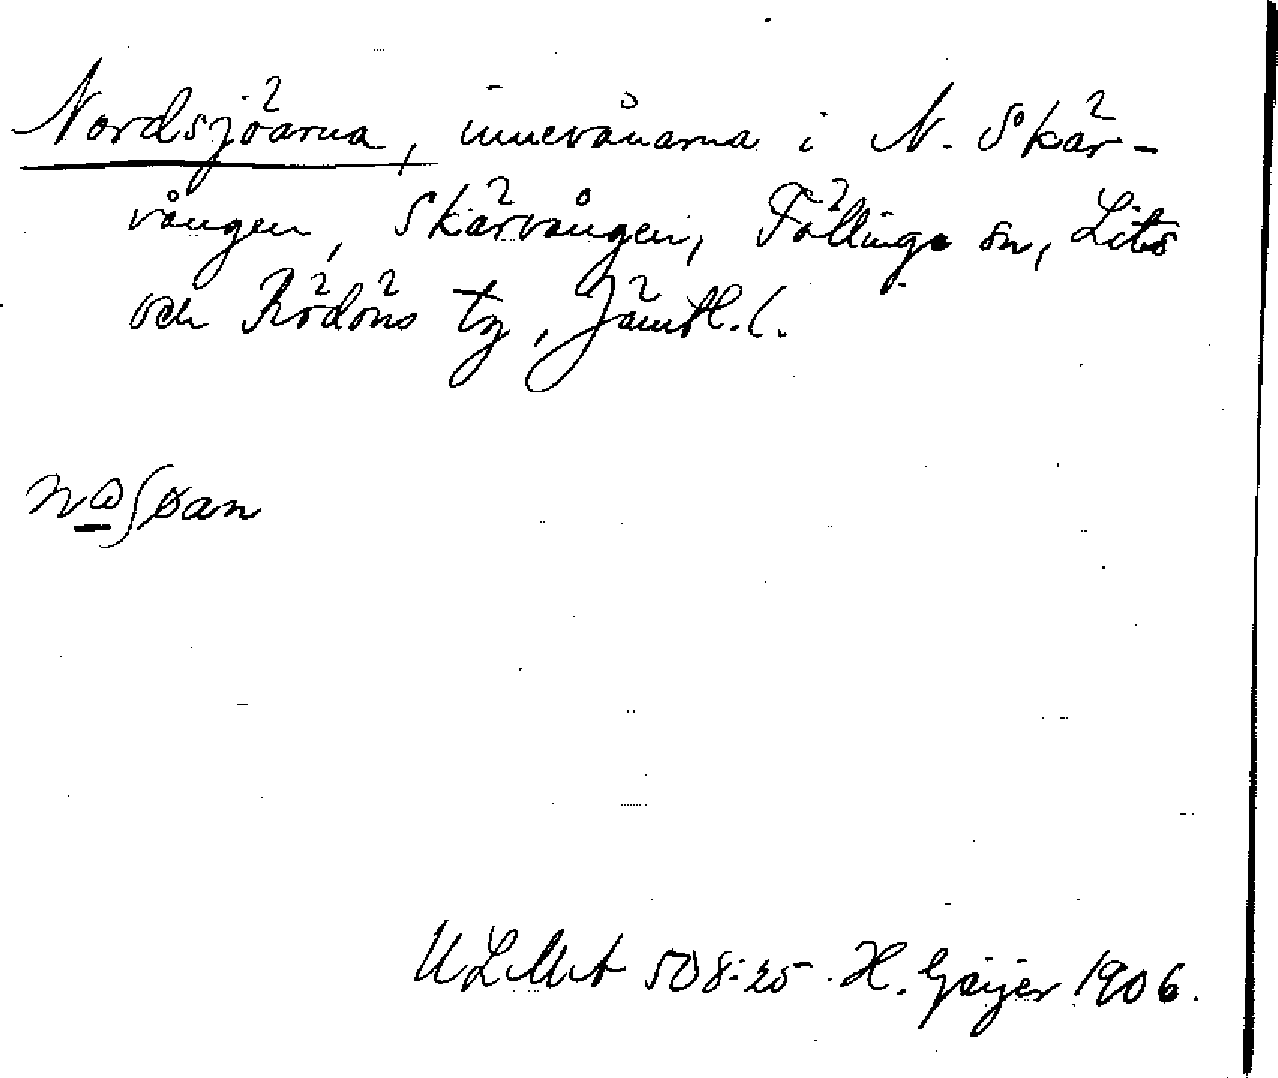 Nordsjöarna, innevånarna i N. Skär-
vången, Skärvången, Föllinge sn, Lits
och Rödöns tg, Jämtl. l.
ULMA 508:25. H. Geijer 1906.